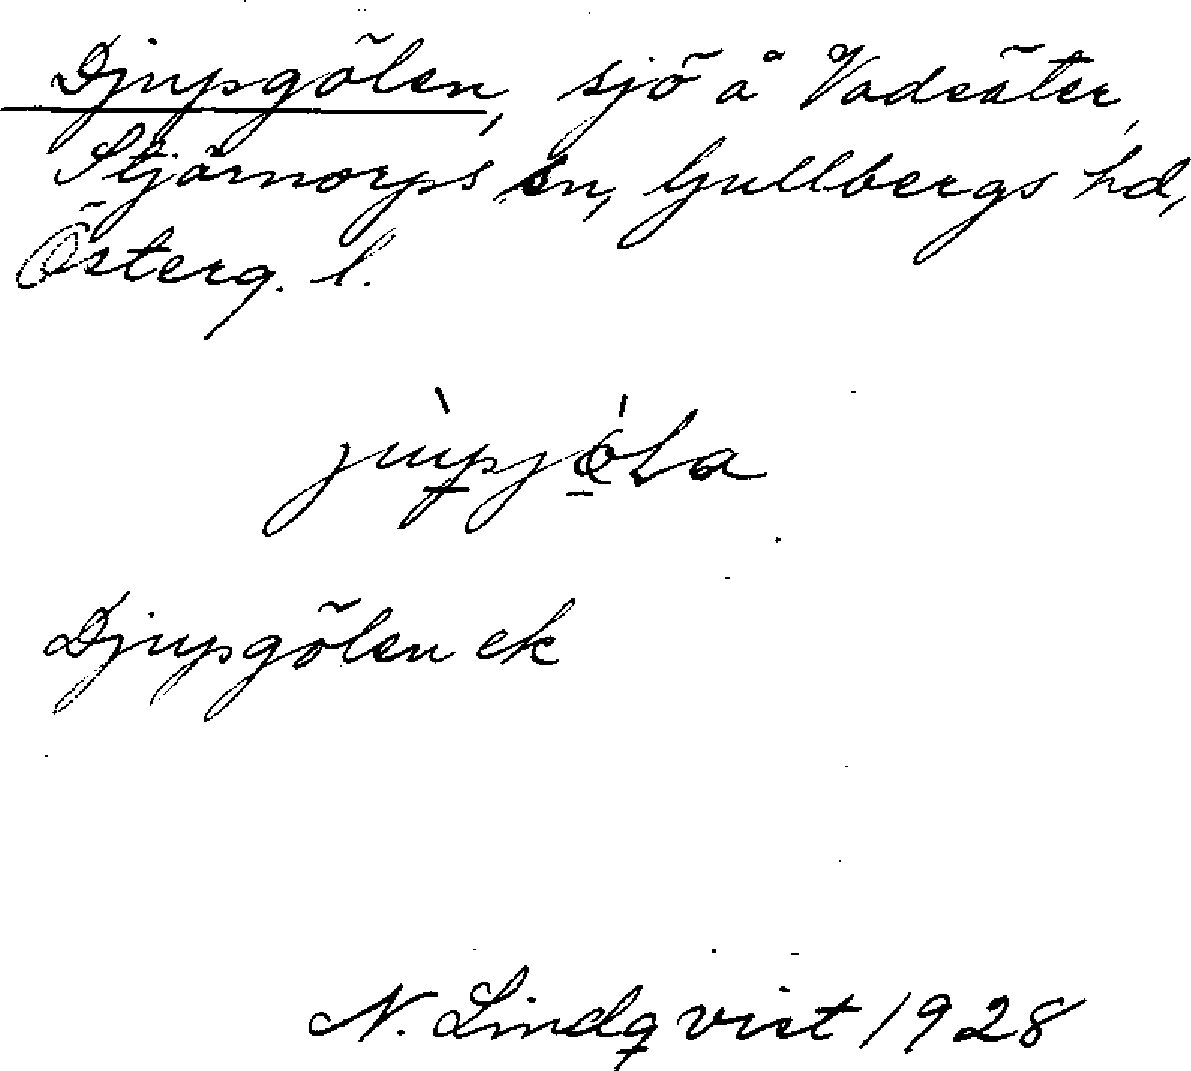 Djupgölen, sjö å Vadsäter,
Stjärnorps sn, Gullbergs hd,
Österg. l.
Djupgölen ek
N. Lindqvist 1928